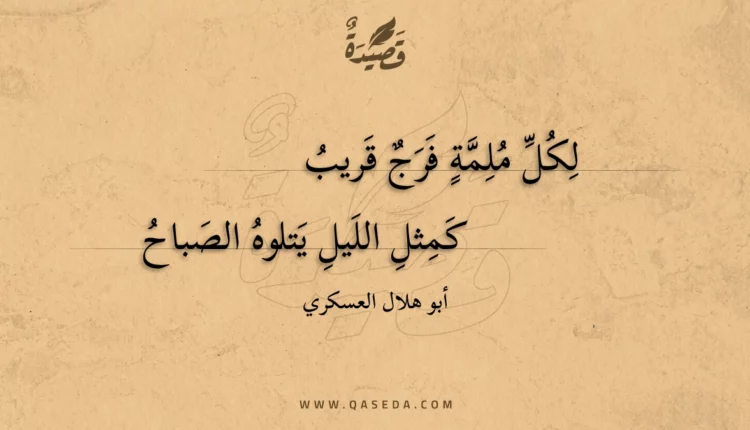 قَصِيدَةٌ
لِكُلِّ مُلِمَّةٍ فَرَجٌ قَريبُ
كَمِثلِ اللَيلِ يَتلوهُ الصَباحُ
أبو هلال العسكري
WWW.QASEDA.COM